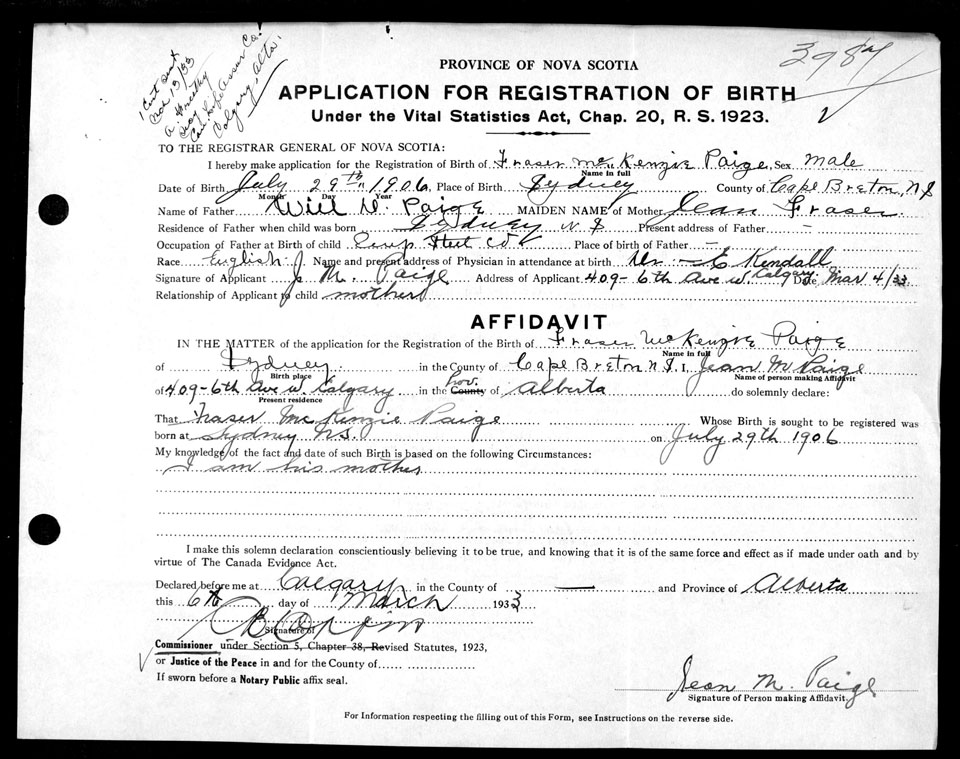 3984
1 Cert sent
Nov 13/33
Can Life Assur Co.
Calgary, Alta.
PROVINCE OF NOVA SCOTIA
APPLICATION FOR REGISTRATION OF BIRTH
Under the Vital Statistics Act, Chap. 20, R. S. 1923.
TO THE REGISTRAR GENERAL OF NOVA SCOTIA:
I hereby make application for the Registration of Birth of Fraser McKenzie Paige Sex Male
Name in full
Date of Birth July 29th 1906 Place of Birth Sydney County of Cape Breton, N S
Month Day Year
Name of Father Will D. Paige MAIDEN NAME of Mother Jean Fraser
Residence of Father when child was born Sydney N S Present address of Father –
Occupation of Father at Birth of child Place of birth of Father –
Race English Name and present address of Physician in attendance at birth Kendall
Signature of Applicant J M. Paige Address of Applicant 409-6th Ave W. Calgary Date Mar 4/33
Relationship of Applicant to child mother
AFFIDAVIT
IN THE MATTER of the application for the Registration of the Birth of Fraser McKenzie Paige
Name in full
of Sydney in the County of Cape Breton N.S. I, Jean M Paige
Birth place Name of person making Affidavit
of 409-6th Ave W. Calgary in the County of Alberta do solemnly declare:
Present residence
That Fraser McKenzie Paige Whose Birth is sought to be registered was
born at Sydney N.S. on July 29th 1906
My knowledge of the fact and date of such Birth is based on the following Circumstances:
I am his mother
I make this solemn declaration conscientiously believing it to be true, and knowing that it is of the same force and effect as if made under oath and by
virtue of The Canada Evidence Act.
Declared before me at Calgary in the County of — and Province of Alberta
this 6th day of March 1933
Signature of
Commissioner under Section 5, Chapter 38, Revised Statutes, 1923,
or Justice of the Peace in and for the County of
If sworn before a Notary Public affix seal.
Jean M. Paige
Signature of Person making Affidavit
For Information respecting the filling out of this Form, see Instructions on the reverse side.